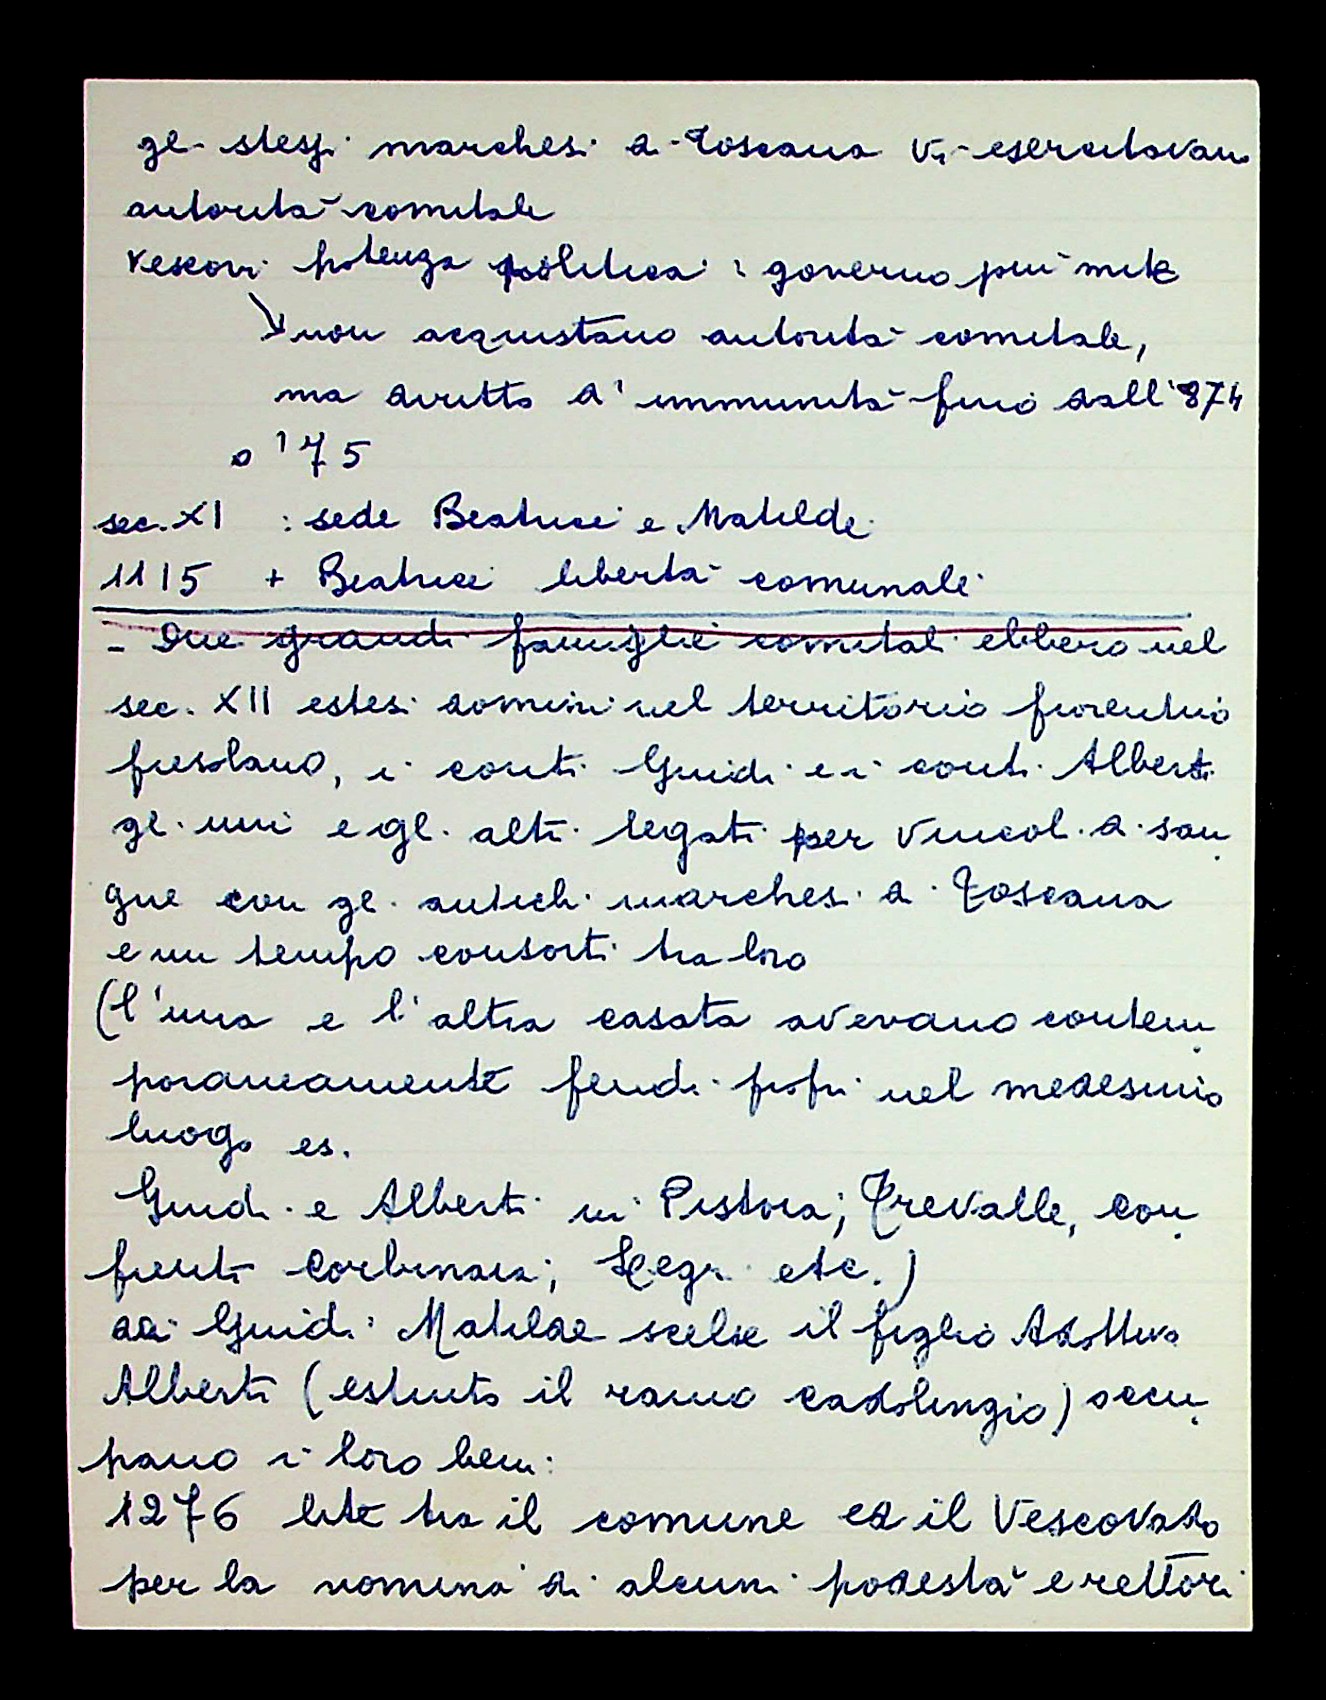 gli stessi marchesi di Toscana vi esercitavano
autorità comitale
Vescovi potenza politica : governo più mite
non acquistano autorità comitale,
ma diritto d'immunità fino dall'874
o '75
sec. XI : sede Beatrice e Matilde
1115 + Beatrice libertà comunali
- Due grandi famiglie comitali ebbero nel
sec. XII estesi domini nel territorio fiorentino
fiesolano, i conti Guidi e i conti Alberti
gli uni e gli altri legati per vincoli di san
gue con gli antichi marchesi di Toscana
e un tempo consorti tra loro
(l'una e l'altra casata avevano contem
poraneamente feudi propri nel medesimo
luogo es.
Guidi e Alberti in Pistoia; Trevalle, Con
fienti Corbinaia; Segni etc.)
dai Guidi: Matilde scelse il figlio Adottivo
Alberti (estinto il ramo cadolingio) occu
pano i loro beni:
1276 lite tra il comune ed il Vescovado
per la nomina di alcuni podestà e rettori